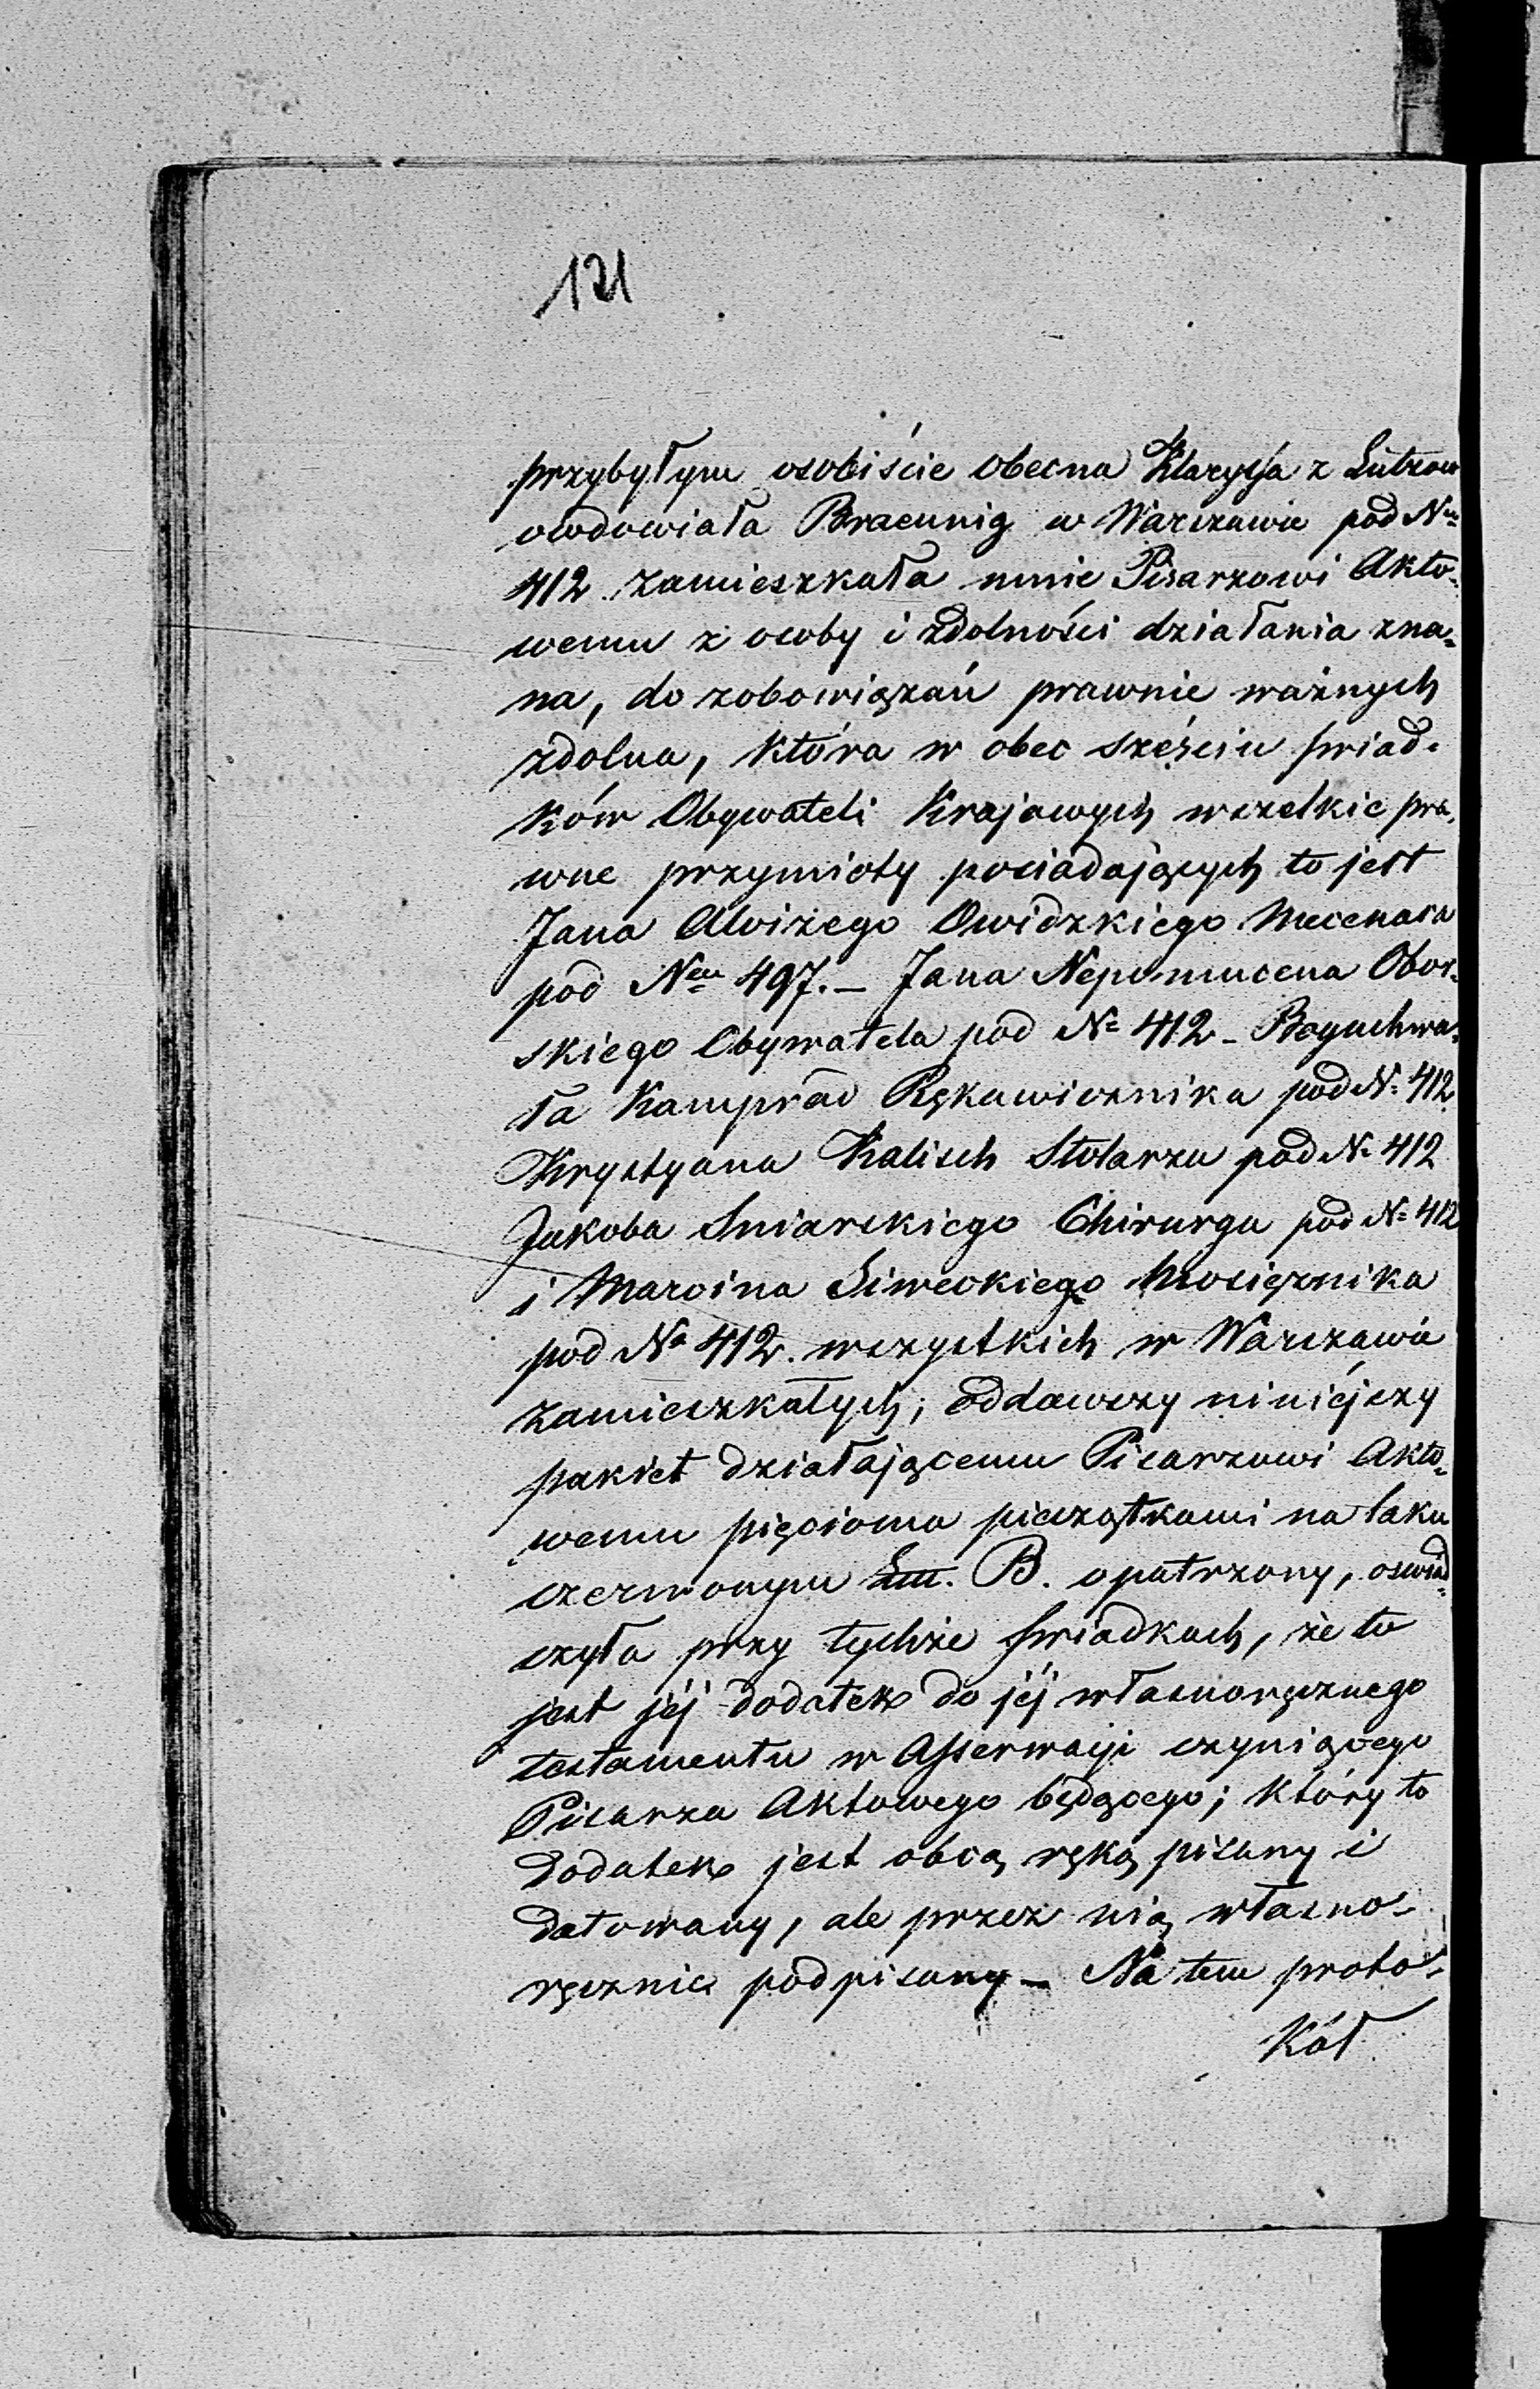 121
przybyłym osobiście obecna Klarysja z Lutzow
owdowiała Braeunig w Warszawie pod Nem
412 zamieszkała mnie Pisarzowi Akto-
wemu z osoby i zdolności działania zna-
na, do zobowiązań prawnie ważnych
zdolna, która w obec sześciu świad-
ków Obywateli Krajowych wszelkie pra-
wne przymioty posiadających to jest
Jana Alojzego Owidzkiego Mecenasa
pod Nem 497. – Jana Nepomucena Obor-
skiego Obywatela pod N= 412 – Boguchwa-
ła Kamprad Rękawicznika pod N= 412
Krystyana Kalisch Stolarza pod N= 412
Jakoba Sniarskiego Chirurga pod N= 412
i Marcina Siweckiego Mosiężnika
pod No 412. wszystkich w Warszawie
zamieszkałych; oddawszy niniejszy
pakiet działającemu Pisarzowi Akto-
wemu pięcioma pieczątkami na laku
czerwonym B. opatrzony, oswiad-
czyła przy tychże świadkach, że to
jest jéj dodatek do jéj własnoręcznego
testamentu w Asserwacji czyniącego
Pisarza Aktowego będącego; który to
dodatek jest obcą ręką pisany i
datowany, ale przez nią własno-
ręcznie podpisany – Na tem proto-
kół